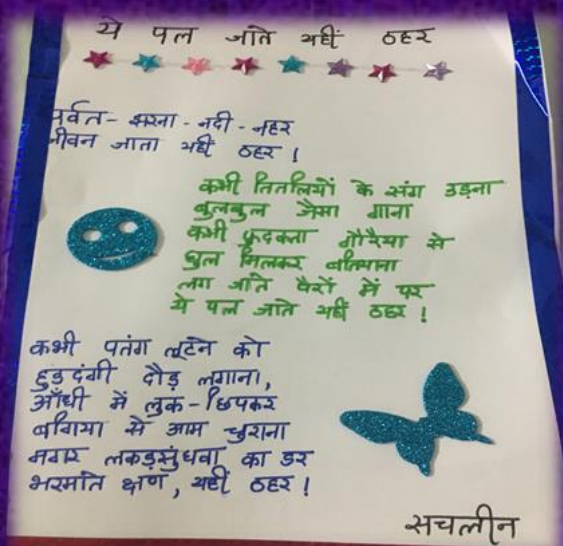 ये पल जाते यहीं ठहर
पर्वत- झरना - नदी - नहर
जीवन जाता यहीं ठहर !
कभी तितलियों के संग उड़ना
बुलबुल जैसा गाना
कभी फुदकना गौरैया से
घुल मिलकर बतियाना
लग जाते पैरों में पर
ये पल जाते यहीं ठहर !
कभी पतंग लूटने को
हुड़दंगी दौड़ लगाना,
आँधी में लुक-छिपकर
बगिया से आम चुराना
मगर लकड़सुंघवा का डर
भरमाते क्षण, यहीं ठहर !
सचलीन